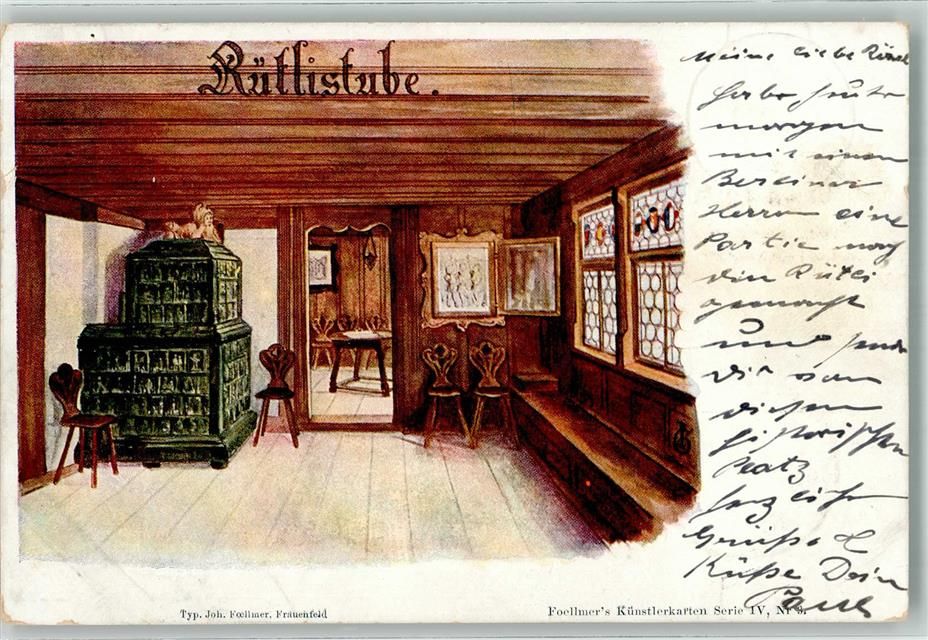 Rütlistube.
Meine liebe Rösel
Habe heute
morgen
mit einem
Berliner
Herrn eine
Partie nach
dem Rütli
gemacht
und sende
Dir von
diesem
historischen
Platz
herzliche
Grüße &
Küße Dein
Paul
Typ. Joh. Fœllmer, Frauenfeld
Foellmer's Künstlerkarten Serie IV, Nr 3.